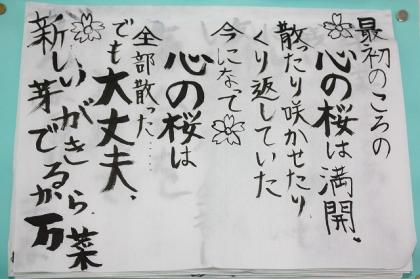 最初のころの
心の桜は満開、
散ったり咲かせたり
くり返していた
今になって
心の桜は
全部散った……
でも大丈夫、
新しいがきら
芽でるから
万菜